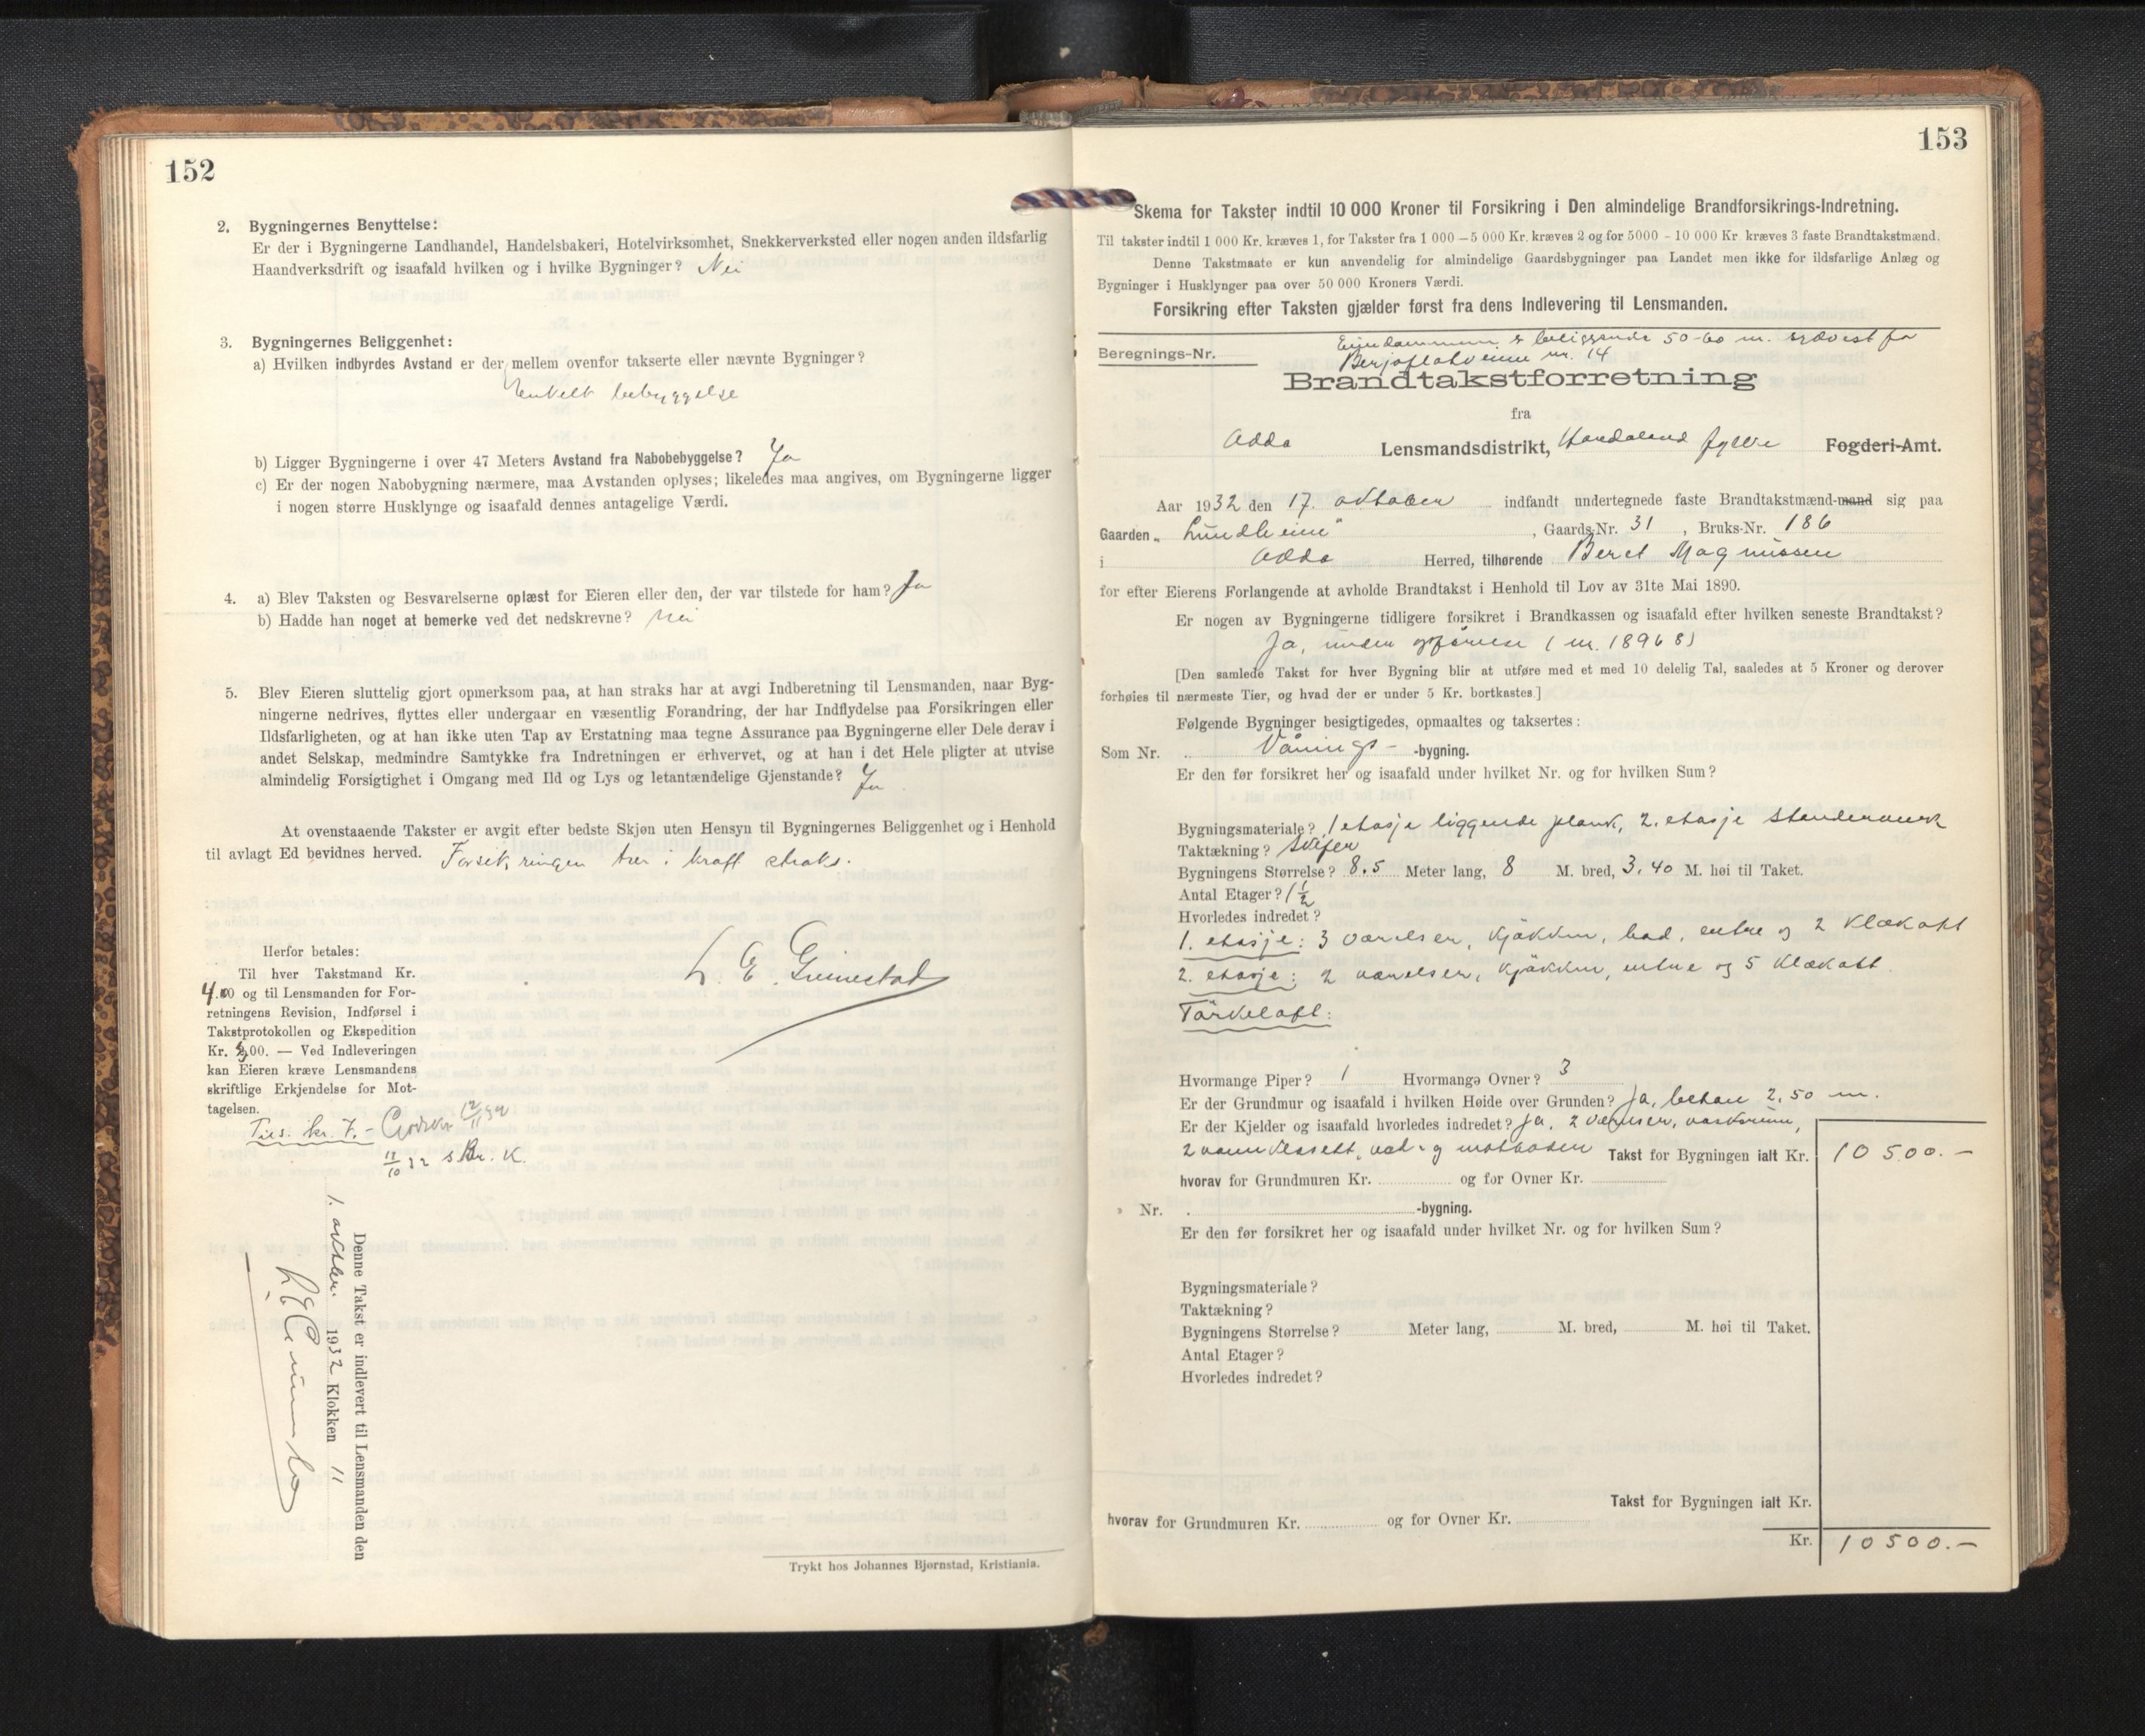 152
2. Bygningernes Benyttelse:
Er der i Bygningerne Landhandel, Handelsbakeri, Hotelvirksomhet, Snekkerverksted eller nogen anden ildsfarlig
Haandverksdrift og isaafald hvilken og i hvilke Bygninger? Nei
3. Bygningernes Beliggenhet:
a) Hvilken indbyrdes Avstand er der mellem ovenfor takserte eller nævnte Bygninger?
Enkelt bebyggelse
b) Ligger Bygningerne i over 47 Meters Avstand fra Nabobebyggelse? Ja
c) Er der nogen Nabobygning nærmere, maa Avstanden oplyses; likeledes maa angives, om Bygningerne ligger
i nogen større Husklynge og isaafald dennes antagelige Værdi.
4. a) Blev Taksten og Besvarelserne oplæst for Eieren eller den, der var tilstede for ham? Ja
b) Hadde han noget at bemerke ved det nedskrevne? Nei
5. Blev Eieren sluttelig gjort opmerksom paa, at han straks har at avgi Indberetning til Lensmanden, naar Byg-
ningerne nedrives, flyttes eller undergaar en væsentlig Forandring, der har Indflydelse paa Forsikringen eller
Ildsfarligheten, og at han ikke uten Tap av Erstatning maa tegne Assurance paa Bygningerne eller Dele derav i
andet Selskap, medmindre Samtykke fra Indretningen er erhvervet, og at han i det Hele pligter at utvise
almindelig Forsigtighet i Omgang med Ild og Lys og letantændelige Gjenstande? Ja
At ovenstaaende Takster er avgit efter bedste Skjøn uten Hensyn til Bygningernes Beliggenhet og i Henhold
til avlagt Ed bevidnes herved. Forsikringen trer i kraft straks.
L. E. Grimestad
Herfor betales:
Til hver Takstmand Kr.
4.00 og til Lensmanden for For-
retningens Revision, Indførsel i
Takstprotokollen og Ekspedition
Kr. 00. — Ved Indleveringen
kan Eieren kræve Lensmandens
skriftlige Erkjendelse for Mot-
tagelsen.
kr. 7.-
Denne Takst er indlevert til Lensmanden den
1. oktbr. 1932 Klokken 11
Trykt hos Johannes Bjørnstad, Kristiania.
153
Skema for Takster indtil 10 000 Kroner til Forsikring i Den almindelige Brandforsikrings-Indretning.
Til takster indtil 1 000 Kr. kræves 1, for Takster fra 1 000 – 5 000 Kr. kræves 2 og for 5000 - 10 000 Kr kræves 3 faste Brandtakstmænd.
Denne Takstmaate er kun anvendelig for almindelige Gaardsbygninger paa Landet men ikke for ildsfarlige Anlæg og
Bygninger i Husklynger paa over 50 000 Kroners Værdi.
Forsikring efter Taksten gjælder først fra dens Indlevering til Lensmanden.
Eiendommen er beliggende 50-60 m. sydvest for
Beregnings-Nr. Berjaflotveien nr. 14
Brandtakstforretning
fra
Odda Lensmandsdistrikt, Hordaland fylke Fogderi-Amt.
Aar 1932 den 17. oktober indfandt undertegnede faste Brandtakstmænd-mand sig paa
Gaarden „Lundheim" , Gaards-Nr. 31 , Bruks-Nr. 186
i Odda Herred, tilhørende Beret Magnussen
for efter Eierens Forlangende at avholde Brandtakst i Henhold til Lov av 31te Mai 1890.
Er nogen av Bygningerne tidligere forsikret i Brandkassen og isaafald efter hvilken seneste Brandtakst?
Ja, under opførelse (nr. 18968)
[Den samlede Takst for hver Bygning blir at utføre med et med 10 delelig Tal, saaledes at 5 Kroner og derover
forhøies til nærmeste Tier, og hvad der er under 5 Kr. bortkastes.]
Følgende Bygninger besigtigedes, opmaaltes og taksertes:
Som Nr. Vånings- -bygning.
Er den før forsikret her og isaafald under hvilket Nr. og for hvilken Sum?
Bygningsmateriale? 1 etasje liggende plank, 2. etasje standerverk
Taktækning? Skifer
Bygningens Størrelse? 8.5 Meter lang, 8 M. bred, 3.40 M. høi til Taket.
Antal Etager? 1½
Hvorledes indredet?
1. etasje: 3 værelser, kjøkken, bad, entre og 2 klækott
2. etasje: 2 værelser, kjøkken, entre og 5 klækott
Tørkeloft:
Hvormange Piper? 1 Hvormange Ovner? 3
Er der Grundmur og isaafald i hvilken Høide over Grunden? Ja, beton 2.50 m.
Er der Kjelder og isaafald hvorledes indredet? Ja, 2 værelser, vaskerum,
2 vannklosett, ved- og matboder Takst for Bygningen ialt Kr. 10500.-
hvorav for Grundmuren Kr. og for Ovner Kr.
» Nr. -bygning.
Er den før forsikret her og isaafald under hvilket Nr. og for hvilken Sum?
Bygningsmateriale?
Taktækning?
Bygningens Størrelse? Meter lang, M. bred, M. høi til Taket.
Antal Etager?
Hvorledes indredet?
Takst for Bygningen ialt Kr.
hvorav for Grundmuren Kr. og for Ovner Kr.
Kr. 10500.-